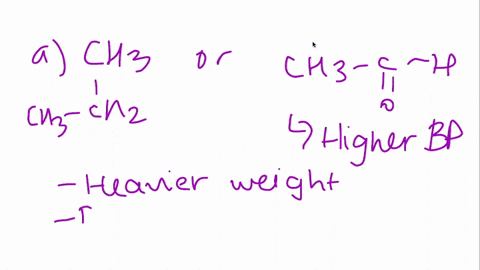 a) CH3 or CH3-C-H
CH3-CH2 O
↳ Higher BP
- Heavier weight
-